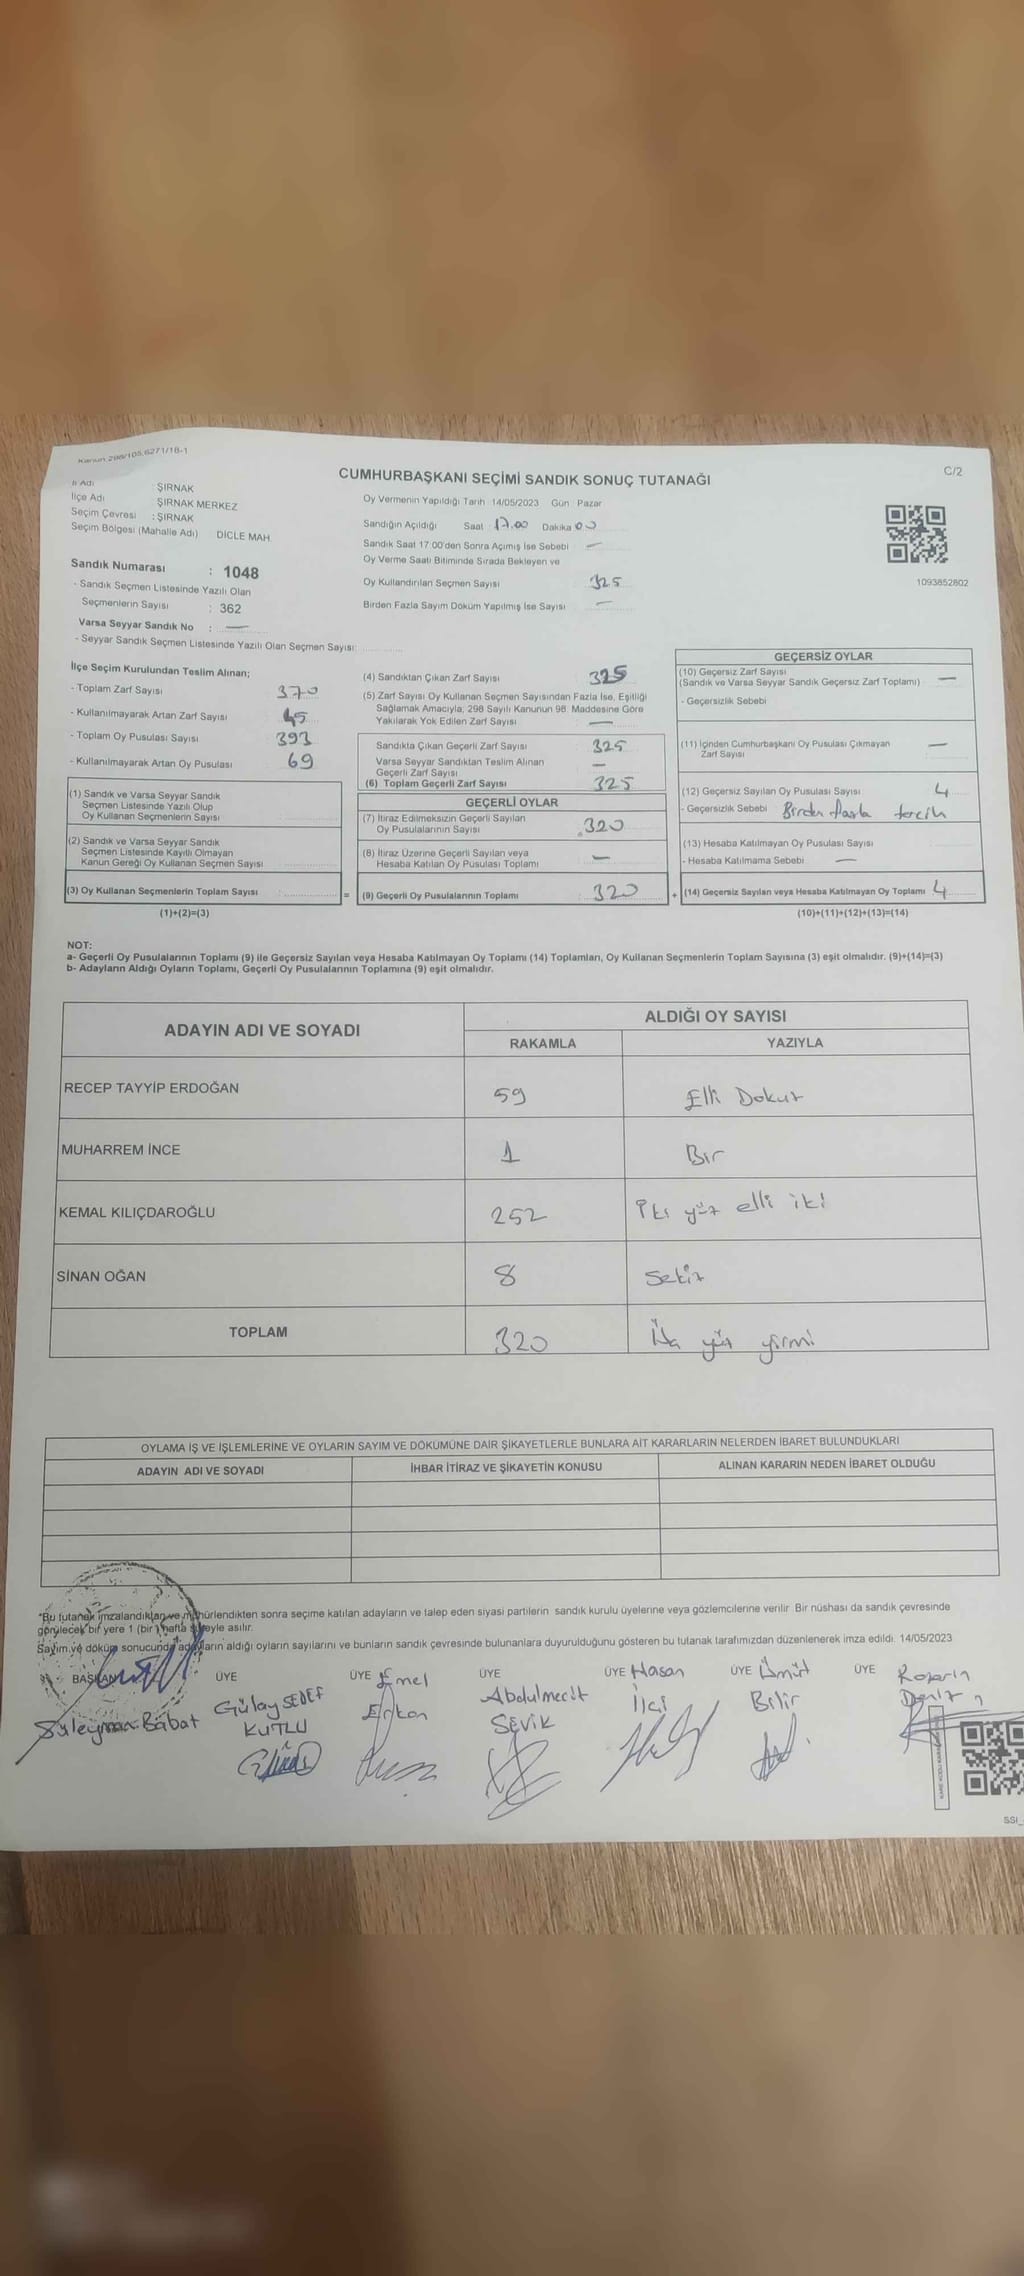 Kanun 298/105,6271/18-1
C/2
CUMHURBAŞKANI SEÇİMİ SANDIK SONUÇ TUTANAĞI
İl Adı ŞIRNAK
İlçe Adı ŞIRNAK MERKEZ
Seçim Çevresi : ŞIRNAK
Seçim Bölgesi (Mahalle Adı) DİCLE MAH.
Oy Vermenin Yapıldığı Tarih 14/05/2023 Gün Pazar
Sandığın Açıldığı Saat 17.00 Dakika 00
Sandık Saat 17:00'den Sonra Açımış İse Sebebi —
Oy Verme Saati Bitiminde Sırada Bekleyen ve
Oy Kullandırılan Seçmen Sayısı 325
Birden Fazla Sayım Döküm Yapılmış İse Sayısı —
1093852802
Sandık Numarası : 1048
- Sandık Seçmen Listesinde Yazılı Olan
Seçmenlerin Sayısı : 362
Varsa Seyyar Sandık No : —
- Seyyar Sandık Seçmen Listesinde Yazılı Olan Seçmen Sayısı:
İlçe Seçim Kurulundan Teslim Alınan;
- Toplam Zarf Sayısı 370
- Kullanılmayarak Artan Zarf Sayısı 45
- Toplam Oy Pusulası Sayısı 393
- Kullanılmayarak Artan Oy Pusulası 69
(1) Sandık ve Varsa Seyyar Sandık
Seçmen Listesinde Yazılı Olup
Oy Kullanan Seçmenlerin Sayısı
(2) Sandık ve Varsa Seyyar Sandık
Seçmen Listesinde Kayıtlı Olmayan
Kanun Gereği Oy Kullanan Seçmen Sayısı
(3) Oy Kullanan Seçmenlerin Toplam Sayısı =
(1)+(2)=(3)
(4) Sandıktan Çıkan Zarf Sayısı 325
(5) Zarf Sayısı Oy Kullanan Seçmen Sayısından Fazla İse, Eşitliği
Sağlamak Amacıyla, 298 Sayılı Kanunun 98. Maddesine Göre
Yakılarak Yok Edilen Zarf Sayısı —
Sandıkta Çıkan Geçerli Zarf Sayısı 325
Varsa Seyyar Sandıktan Teslim Alınan
Geçerli Zarf Sayısı —
(6) Toplam Geçerli Zarf Sayısı 325
GEÇERLİ OYLAR
(7) İtiraz Edilmeksizin Geçerli Sayılan
Oy Pusulalarının Sayısı 320
(8) İtiraz Üzerine Geçerli Sayılan veya
Hesaba Katılan Oy Pusulası Toplamı —
(9) Geçerli Oy Pusulalarının Toplamı 320 +
GEÇERSİZ OYLAR
(10) Geçersiz Zarf Sayısı
(Sandık ve Varsa Seyyar Sandık Geçersiz Zarf Toplamı) —
- Geçersizlik Sebebi
(11) İçinden Cumhurbaşkanı Oy Pusulası Çıkmayan
Zarf Sayısı —
(12) Geçersiz Sayılan Oy Pusulası Sayısı 4
- Geçersizlik Sebebi Birden fazla tercih
(13) Hesaba Katılmayan Oy Pusulası Sayısı
- Hesaba Katılmama Sebebi —
(14) Geçersiz Sayılan veya Hesaba Katılmayan Oy Toplamı 4
(10)+(11)+(12)+(13)=(14)
NOT:
a- Geçerli Oy Pusulalarının Toplamı (9) ile Geçersiz Sayılan veya Hesaba Katılmayan Oy Toplamı (14) Toplamları, Oy Kullanan Seçmenlerin Toplam Sayısına (3) eşit olmalıdır. (9)+(14)=(3)
b- Adayların Aldığı Oyların Toplamı, Geçerli Oy Pusulalarının Toplamına (9) eşit olmalıdır.
ADAYIN ADI VE SOYADI
ALDIĞI OY SAYISI
RAKAMLA YAZIYLA
RECEP TAYYİP ERDOĞAN 59 Elli Dokuz
MUHARREM İNCE 1 Bir
KEMAL KILIÇDAROĞLU 252 İki yüz elli iki
SİNAN OĞAN 8 Sekiz
TOPLAM 320 Üç yüz yirmi
OYLAMA İŞ VE İŞLEMLERİNE VE OYLARIN SAYIM VE DÖKÜMÜNE DAİR ŞİKAYETLERLE BUNLARA AİT KARARLARIN NELERDEN İBARET BULUNDUKLARI
ADAYIN ADI VE SOYADI İHBAR İTİRAZ VE ŞİKAYETİN KONUSU ALINAN KARARIN NEDEN İBARET OLDUĞU
*Bu tutanak imzalandıktan ve mühürlendikten sonra seçime katılan adayların ve talep eden siyasi partilerin sandık kurulu üyelerine veya gözlemcilerine verilir. Bir nüshası da sandık çevresinde
görülecek bir yere 1 (bir) hafta süreyle asılır.
Sayım ve döküm sonucunda adayların aldığı oyların sayılarını ve bunların sandık çevresinde bulunanlara duyurulduğunu gösteren bu tutanak tarafımızdan düzenlenerek imza edildi. 14/05/2023
BAŞKAN ÜYE ÜYE ÜYE ÜYE ÜYE ÜYE
Süleyman Babat
Gülay SEDEF
KUTLU
Emel
Erkan
Abdulmecit
SEVİK
Hasan
İlçi
Ümüt
Bilir
Rozerin
Deniz
SSI_